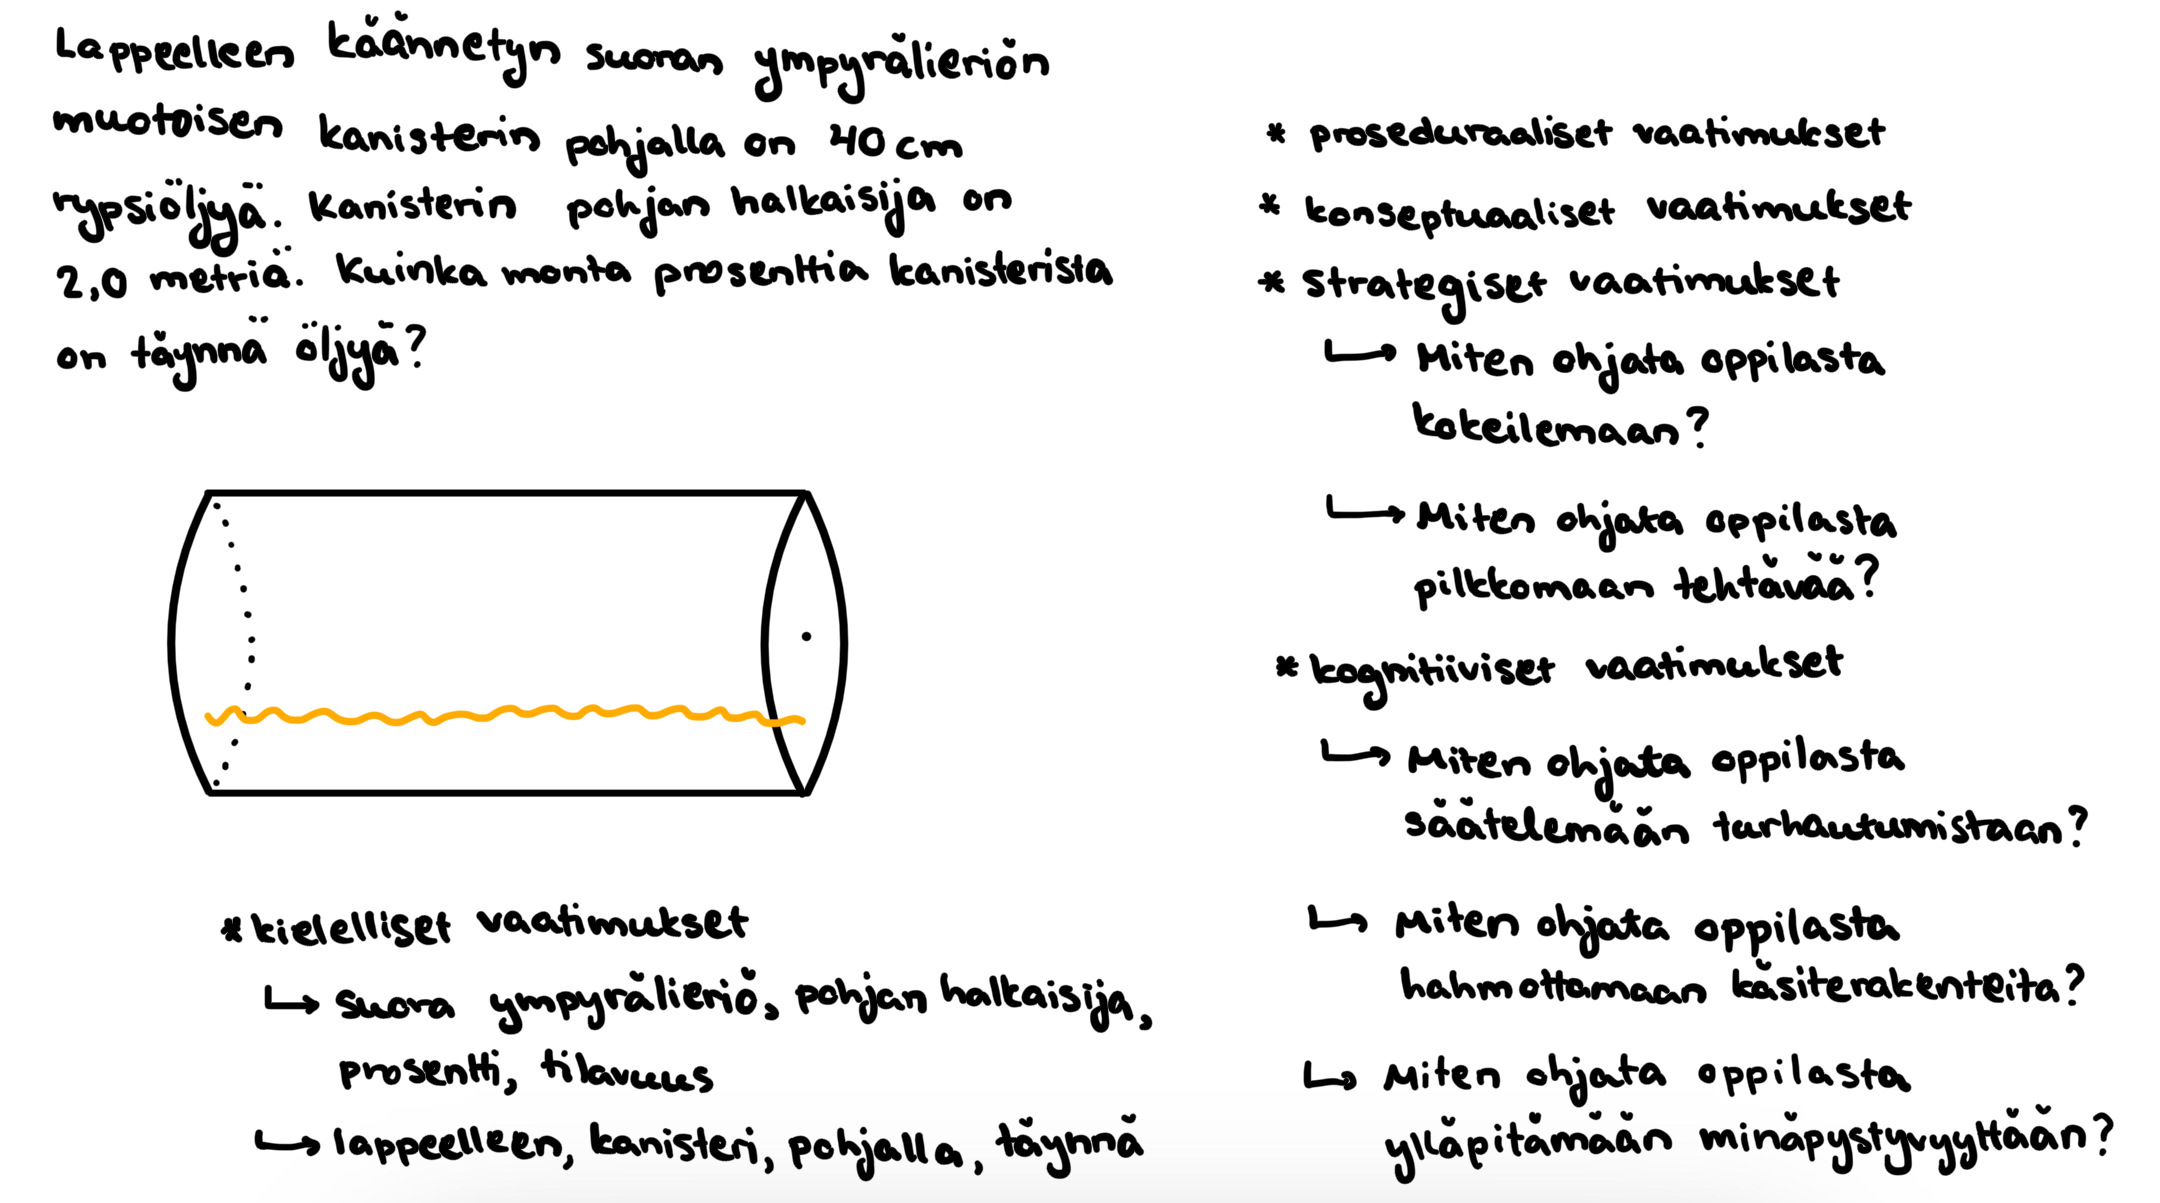 Lappeelleen käännetyn suoran ympyrälieriön
muotoisen kanisterin pohjalla on 40 cm
rypsiöljyä. Kanisterin pohjan halkaisija on
2,0 metriä. Kuinka monta prosenttia kanisterista
on täynnä öljyä?
* kielelliset vaatimukset
↳ suora ympyrälieriö, pohjan halkaisija,
prosentti, tilavuus
↳ lappeelleen, kanisteri, pohjalla, täynnä
* proseduraaliset vaatimukset
* konseptuaaliset vaatimukset
* strategiset vaatimukset
↳ Miten ohjata oppilasta
kokeilemaan?
↳ Miten ohjata oppilasta
pilkkomaan tehtävää?
* kognitiiviset vaatimukset
↳ Miten ohjata oppilasta
säätelemään turhautumistaan?
↳ Miten ohjata oppilasta
hahmottamaan käsiterakenteita?
↳ Miten ohjata oppilasta
ylläpitämään minäpystyvyyttään?